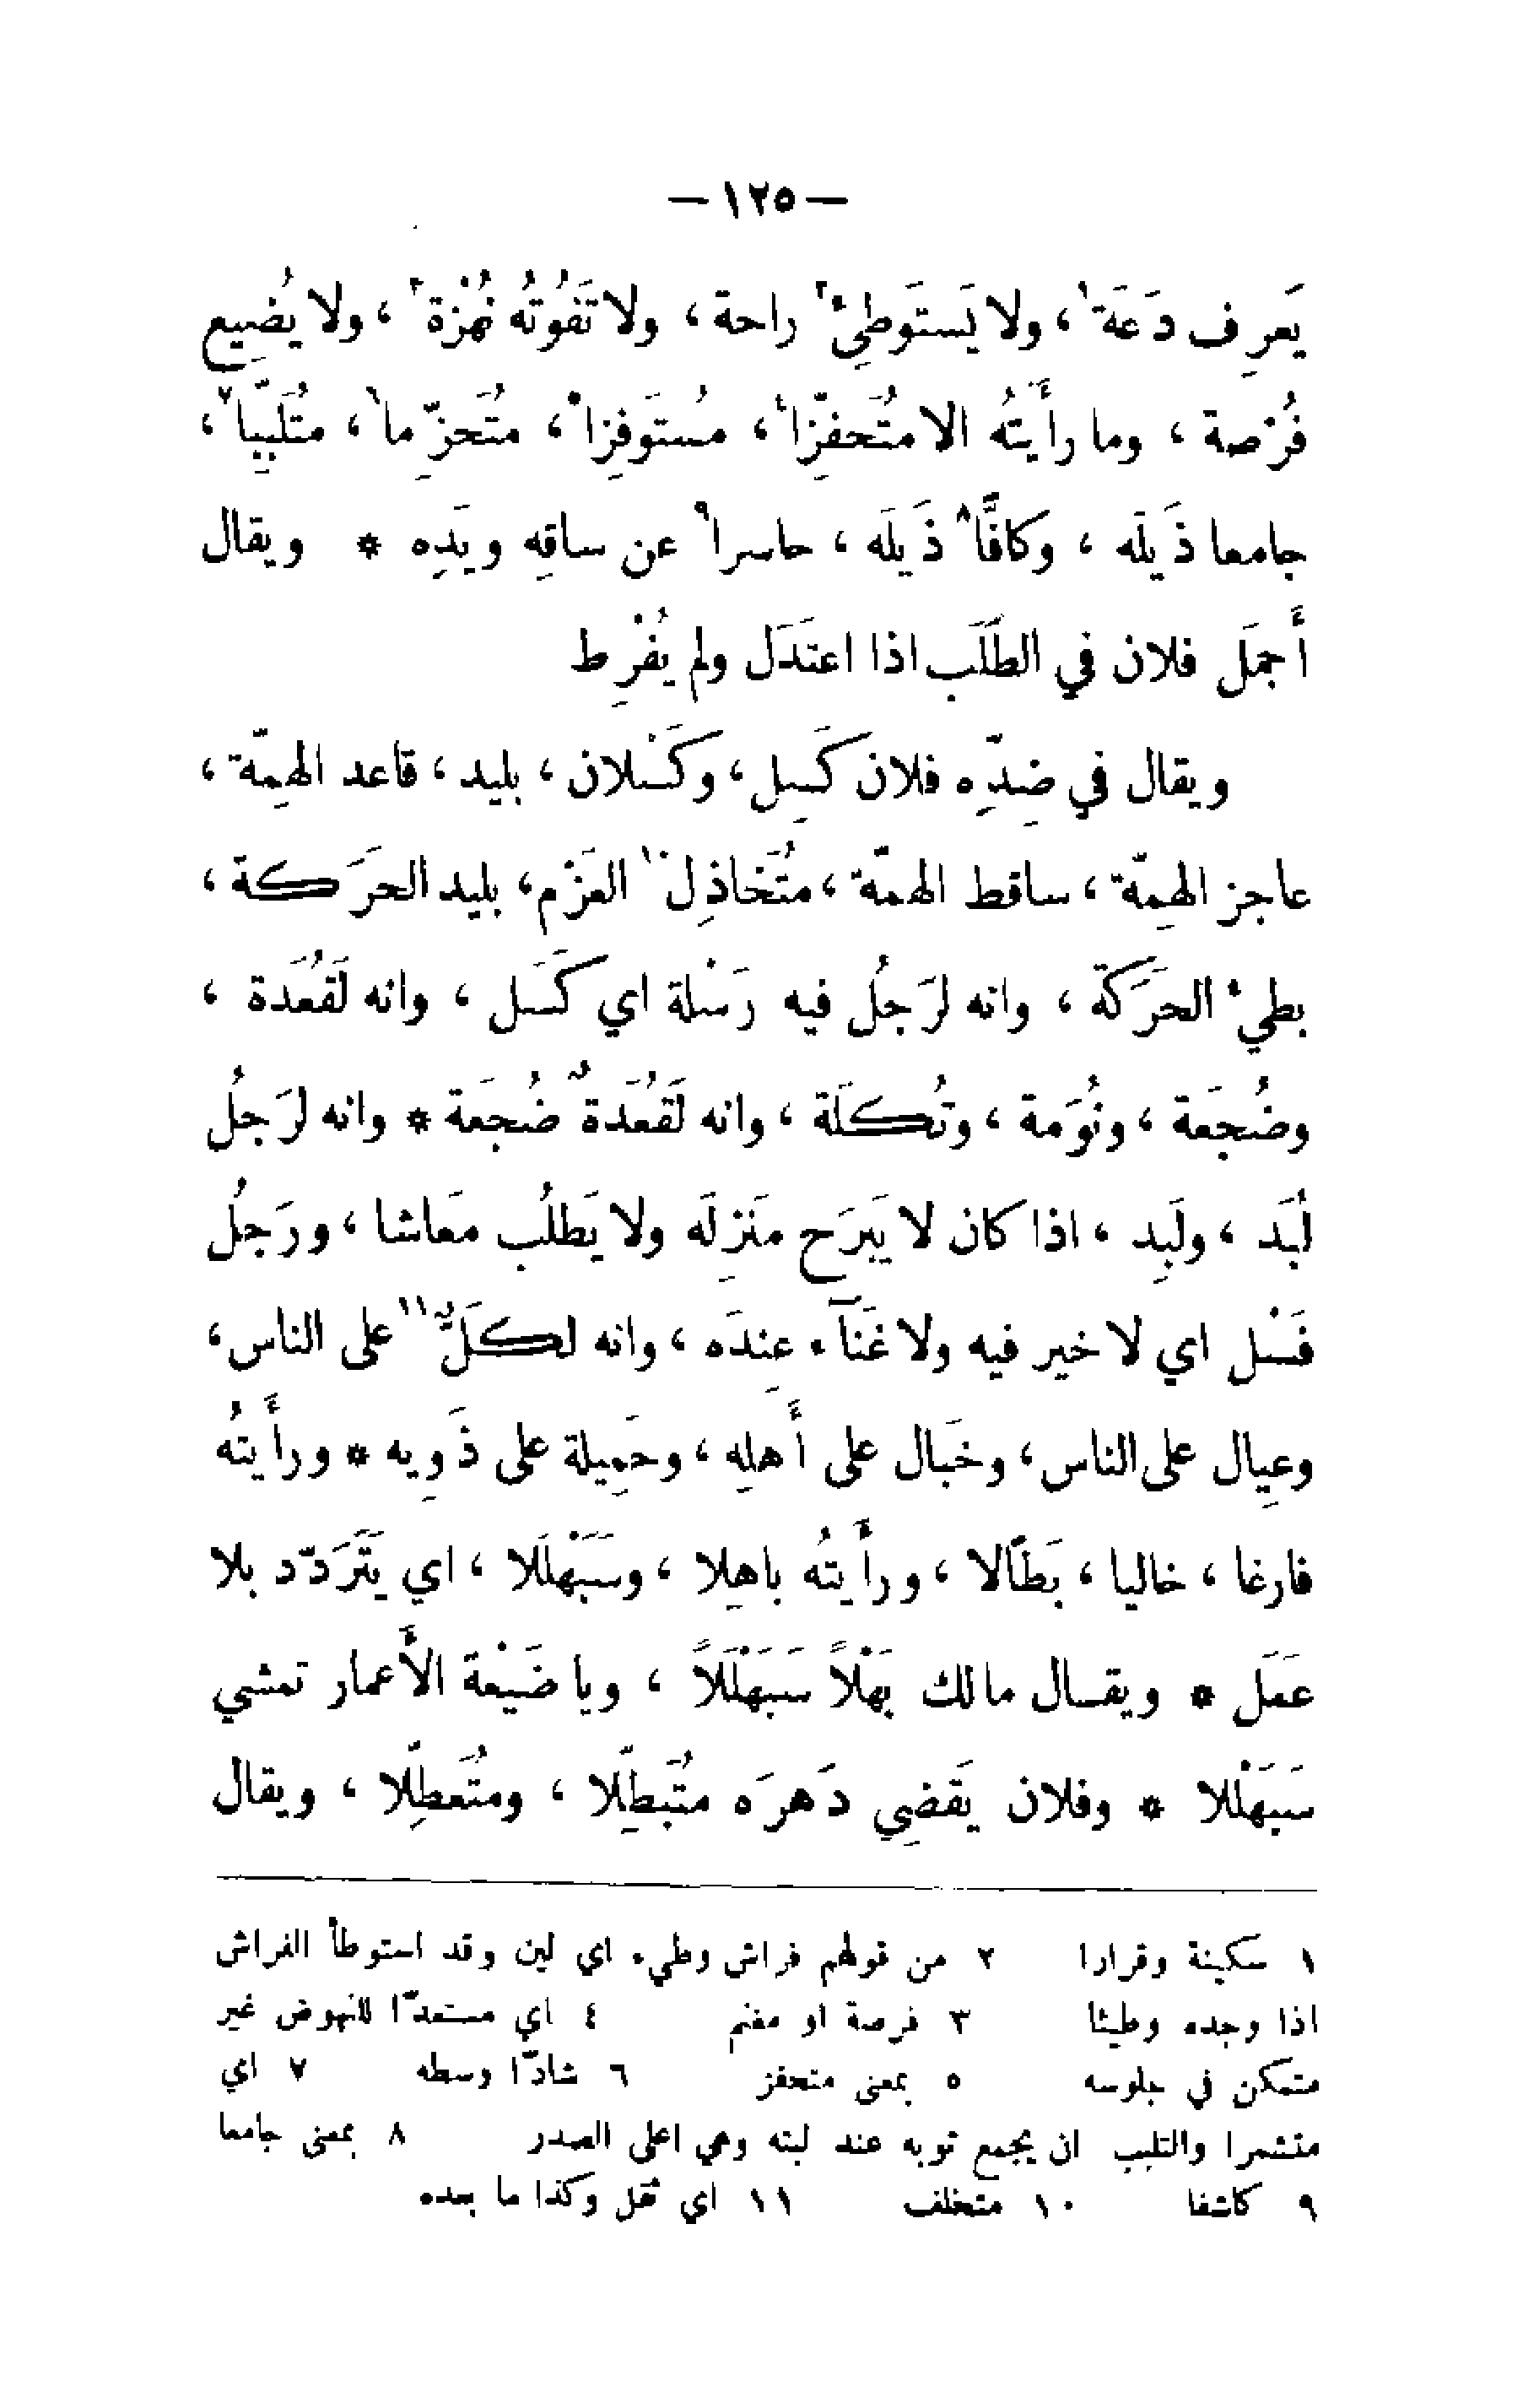 — ١٢٥ —
يَعرِف دَعَة١ ، ولا يَستَوطِئ٢ راحة ، ولا تَفُوتُه نُهْزة٣ ، ولا يُضِيع
فُرْصة ، وما رأَيتُه الا مُتَحفِّزا٤ ، مُستَوفِزا٥ ، مُتَحزِّما٦ ، مُتَلبِّبا٧ ،
جامعا ذَيلَه ، وكافًّا٨ ذَيلَه ، حاسرا٩ عن ساقِه ويَدِه * ويقال
أَجمَل فلان في الطَلَب اذا اعتَدَل ولم يُفْرِط
ويقال في ضِدِّه فلان كَسِل ، وكَسْلان ، بليد ، قاعد الهِمّة ،
عاجز الهِمّة ، ساقط الهمّة ، مُتَخاذِل١٠ العَزْم ، بليد الحرَكة ،
بطيء الحرَكة ، وانه لرَجُل فيه رَسْلة اي كَسَل ، وانه لَقُعَدة ،
وضُجَعة ، ونُوَمة ، وتُكَلَة ، وانه لَقُعَدةٌ ضُجَعة * وانه لرَجُل
لُبَد ، ولَبِد ، اذا كان لا يَبرَح مَنزِلَه ولا يَطلُب مَعاشا ، ورَجُل
فَسْل اي لا خير فيه ولا غَنآء عِندَه ، وانه لكَلٌّ١١ على الناس ،
وعِيال على الناس ، وخَبال على أَهلِه ، وحَمِيلة على ذَوِيه * ورأَيتُه
فارغا ، خاليا ، بَطّالا ، ورأَيتُه باهِلا ، وسَبَهْلَلا ، اي يَتَرَدّد بلا
عَمَل * ويقال مالك بَهْلاً سَبَهْلَلاً ، ويا ضَيْعة الأَعمار تمشي
سَبَهْلَلا * وفلان يَقضِي دَهرَه مُتَبطِّلا ، ومُتَعطِّلا ، ويقال
١ سكينة وقرارا ٢ من قولهم فراش وطيء اي لين وقد استوطأ الفراش
اذا وجده وطيئا ٣ فرصة او مغنم ٤ اي مستعدّا للنهوض غير
متمكن في جلوسه ٥ بمعنى متحفز ٦ شادّا وسطه ٧ اي
متشمرا والتلبب ان يجمع ثوبه عند لبته وهي اعلى الصدر ٨ بمعنى جامعا
٩ كاشفا ١٠ متخلف ١١ اي ثقل وكذا ما بعده